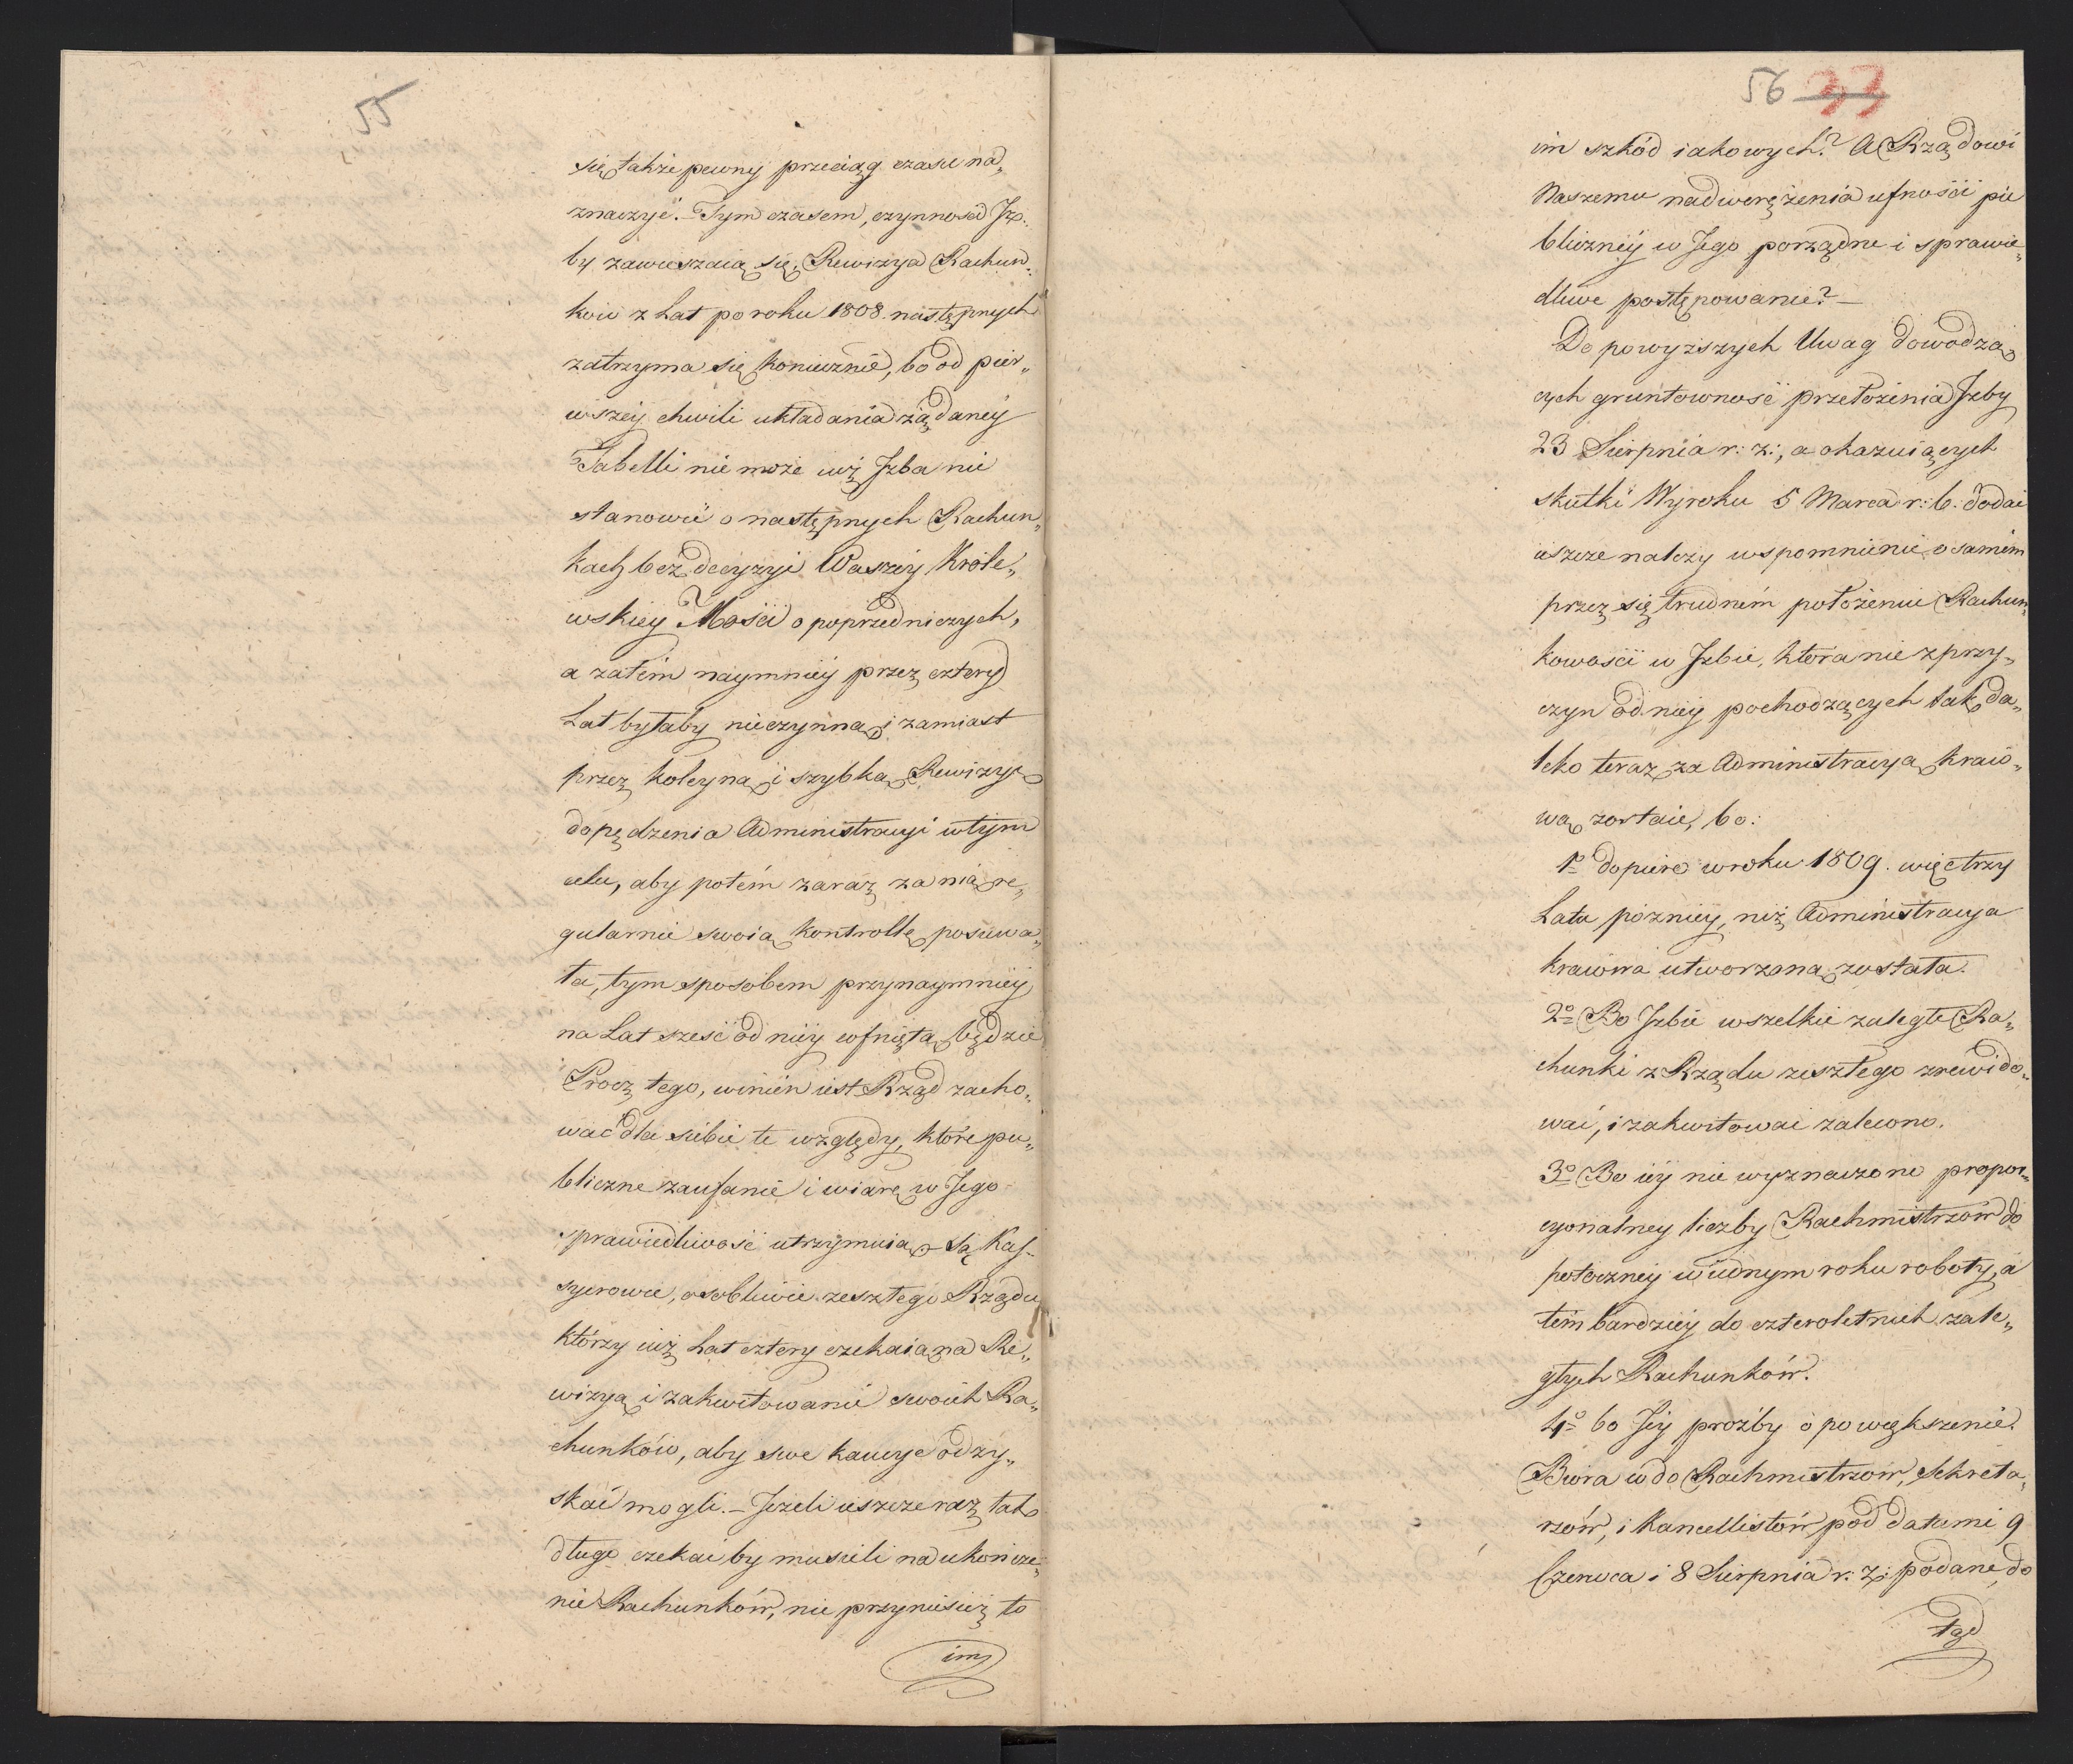 55
się także pewny przeciąg czasu na„
znaczyć. Tym czasem, czynność Jz„
by zawieszaią się, Rewizya Rachun„
ków z Lat po roku 1808. następnych
zatrzyma się koniecznie, bo od pier„
wszéy chwili układania żądanéy
Tabelli nie może iuż Jzba nic
stanowić o następnych Rachun„
kach bez decyzyi Waszéy Króle„
wskiéy Mości o poprzedniczych,
a zatém naymniéy przez cztery
Lat byłaby nieczynną, i zamiast
przez koleyną i szybką Rewizyę
dopędzenia Administracyi w tym
celu, aby potém zaraz za nią re„
gularnie swoią kontrollę posuwa„
ła, tym sposobem przynaymniéy
na Lat sześć od niéy cofniętą będzie
Prócz tego, winien iest Rząd zacho„
wać dla siebie te względy, które pu„
bliczne zaufanie i wiarę w Jego
sprawiedliwość utrzymuią. Są Kas„
syerowie, osobliwie zeszłego Rządu
którzy iuż Lat cztery czekaią na Re„
wizyą i zakwitowanie swoich Ra„
chunków, aby swe kaucye odzy„
skać mogli. – Jeżeli ieszcze raz tak
długo czekać by musieli na ukończe„
nie Rachunków, nie przyniesież to
im
56 33
im szkód iakowych? A Rządowi
Naszemu nadwerężenia ufności pu
blicznéy w Jego porządne i sprawie„
dliwe postępowanie? –
Do powyższych Uwag dowodzą„
cych gruntowność przełożenia Jzby
23 Sierpnia r: z:, a okazuiących
skutki Wyroku 5 Marca r: b: dodać
ieszcze należy wspomnienie o samém
przez się trudném położeniu Rachun„
kowości w Jzbie, która nie z przy„
czyn od niéy pochodzących tak da„
leko teraz za Administracyą kraio„
wą zostaie, bo:
1º dopiero w roku 1809. więc trzy
Lata późniéy, niż Administracya
kraiowa utworzoną została.
2º Bo Jzbie wszelkie zaległe Ra„
chunki z Rządu zeszłego zrewido„
wać, i zakwitować zalecono.
3º Bo iéy nie wyznaczono propor„
cyonalney liczby Rachmistrzów do
potocznéy w iednym roku roboty, a
tém bardziéy do czteroletnich zale„
głych Rachunków.
4º bo Jéy prożby o powiększenie
Biura iéy do Rachmistrzów, Sekreta„
rzów, i Kancellistów pod datami 9
Czerwca i 8 Sierpnia r: z: podane, do
tąd